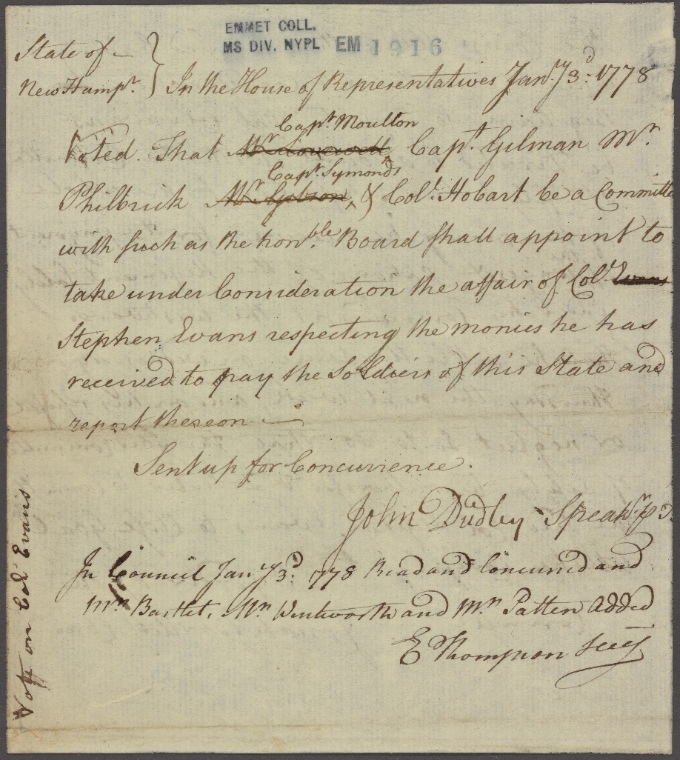 EMMET COLL.
MS DIV. NYPL EM 1916
State of
New Hampr. } In the House of Representatives Jany 3d: 1778
Capt Moulton
Voted. That Capt. Gilman Mr
Capt. Symonds
Philbrick Mr Gibson & Colo. Hobart be a Committe
with such as the honble. Board shall appoint to
take under Consideration the affair of Colo. Evans
Stephen Evans respecting the monies he has
received to pay the Soldiers of this State and
report thereon
Sent up for Concurrence.
John Dudley Speakr. P T.
In Council Jany 3d. 1778 Read and Concurred and
Mr Bartlet, Mr Wentworth and Mr Patten added
E Thompson Secy
Vote on Col Evans